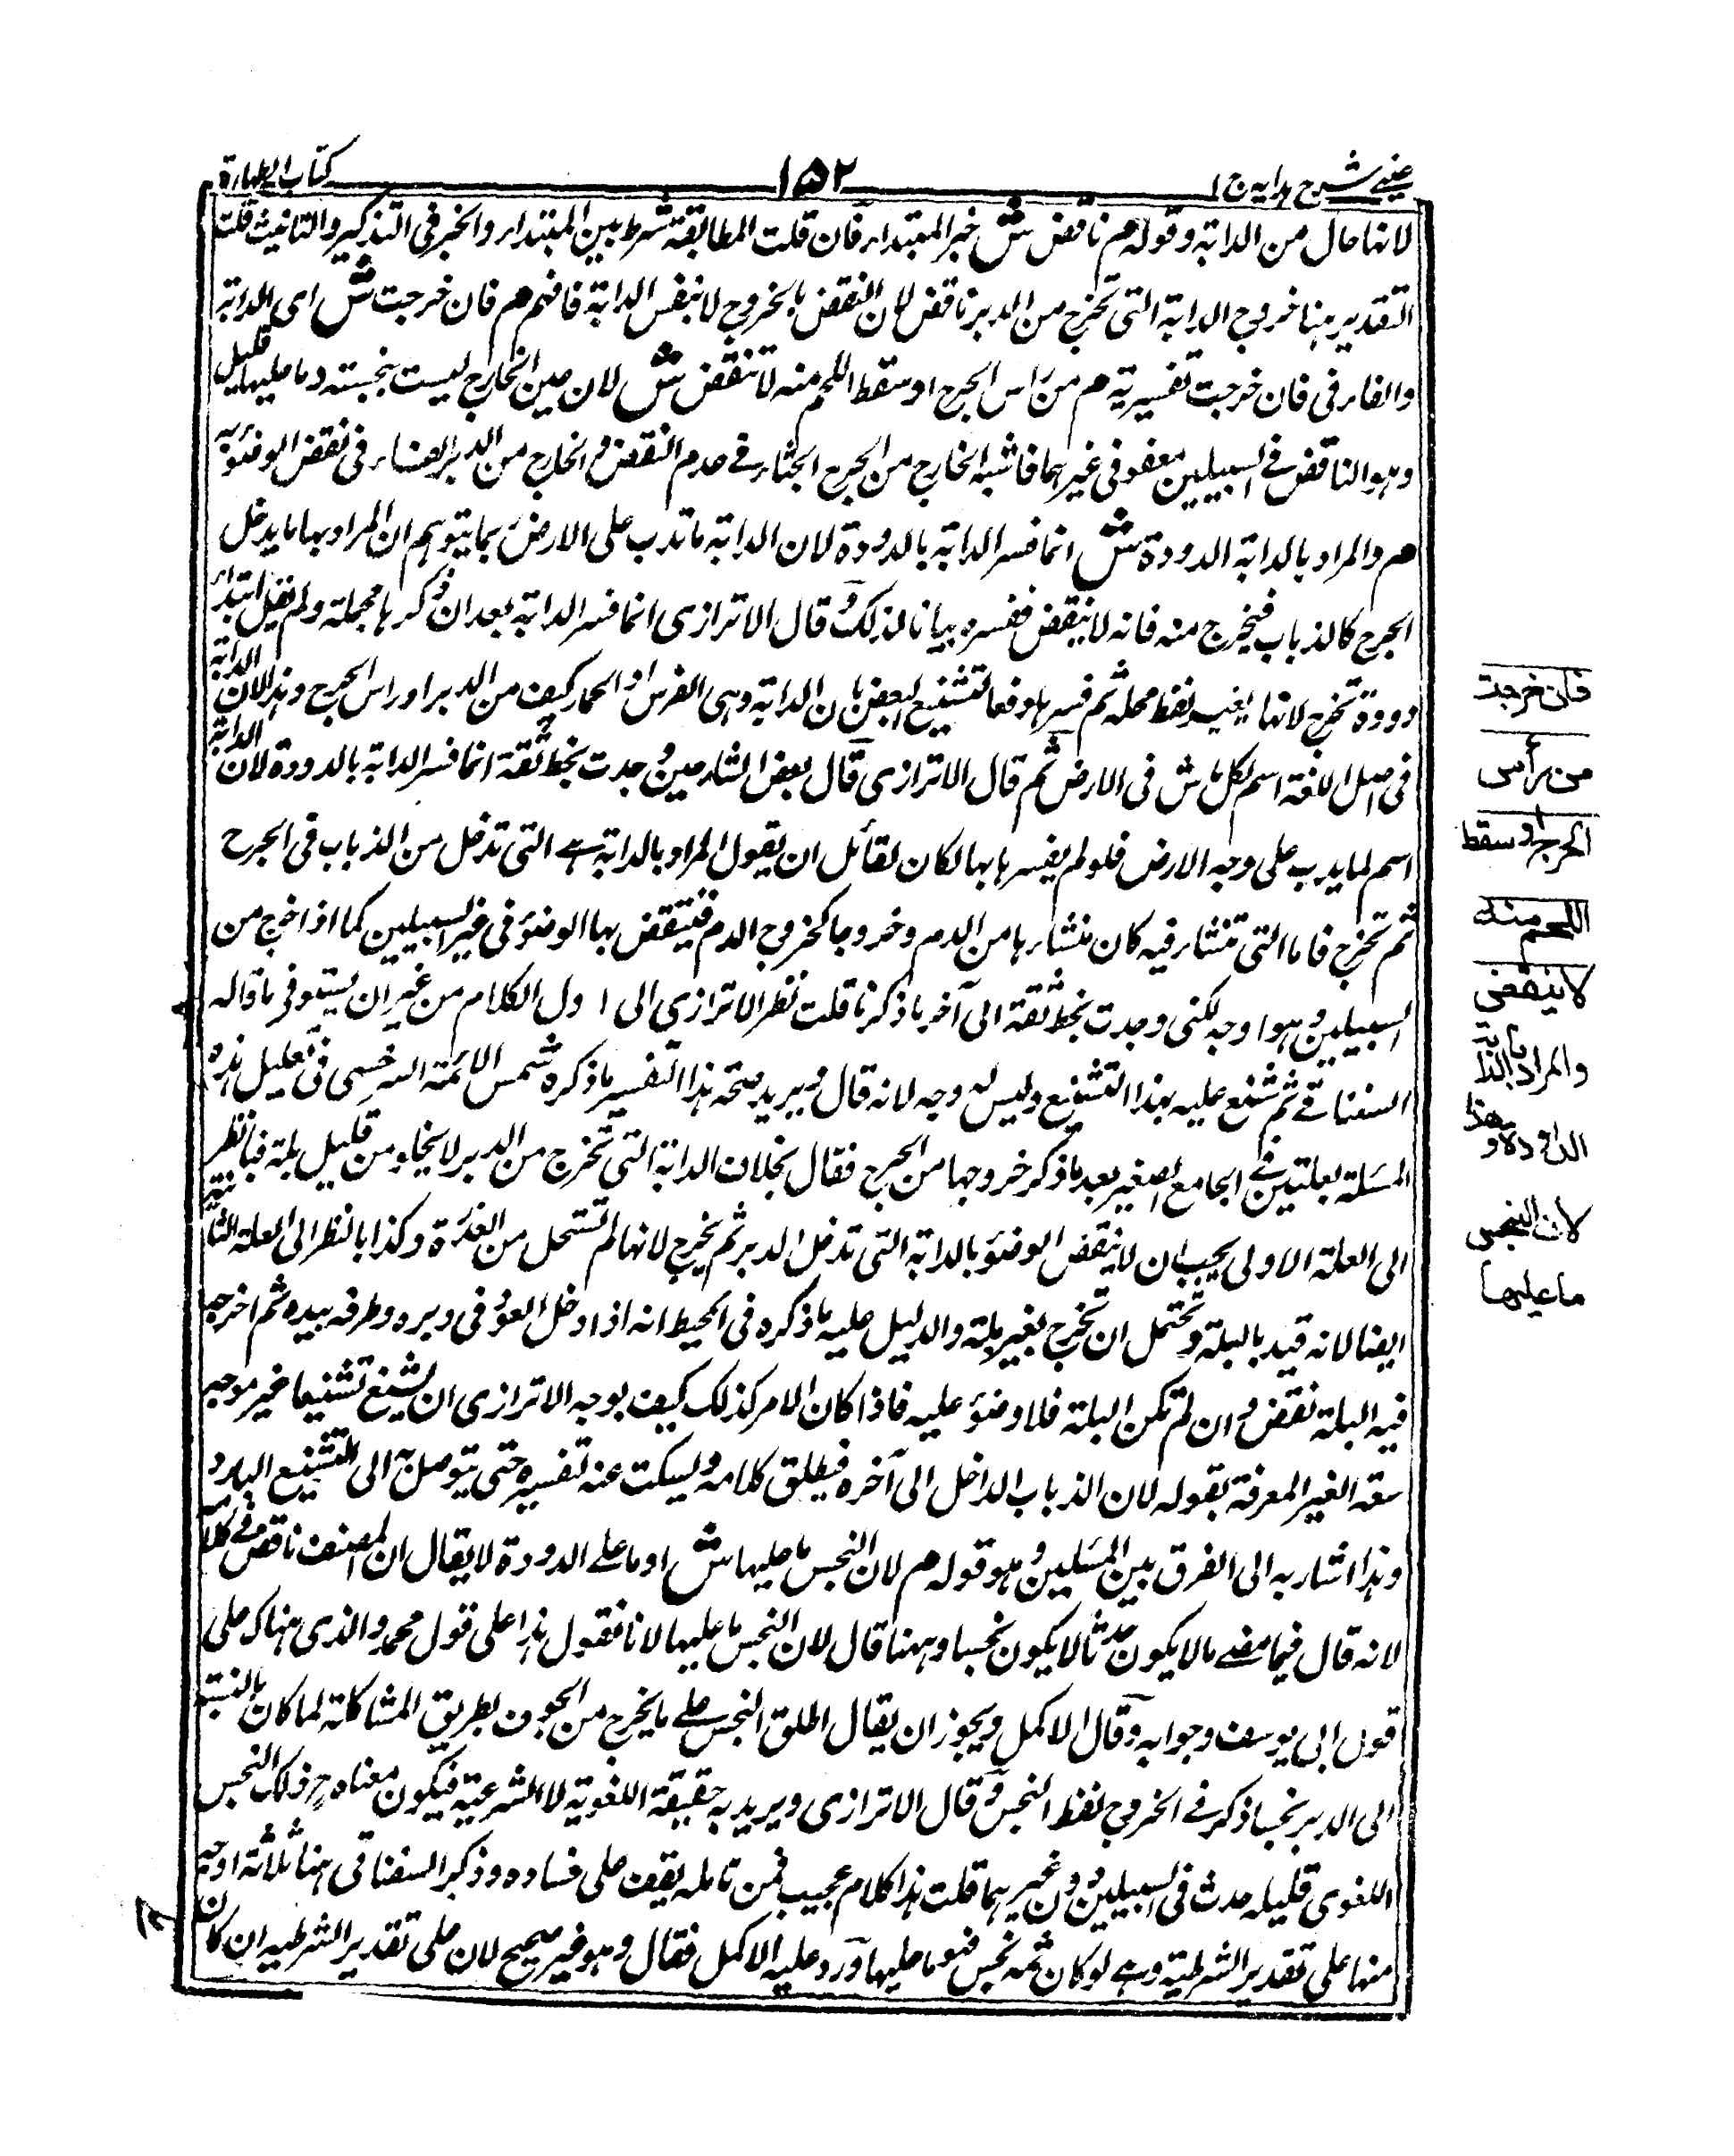 عينى شرح هدايه ج ١
١٥٢
كتاب الطهارة
لانها حال من الدابة وقوله م ناقض ش خبر المبتدأ فان قلت المطابقة شرط بين المبتدأ والخبر فى التذكير والتانيث قلت
التقدير هنا خروج الدابة التى تخرج من الدبر ناقض لان النقض بالخروج لا بنفس الدابة فافهم م فان خرجت ش اى الدابة
والفاء فى فان خرجت تفسيرية م من راس الجرح او سقط اللحم منه لا تنقض ش لان عين الخارج ليست بنجسته وما عليها قليل
وهو الناقض فى السبيلين معفو فى غيرهما فاشبه الخارج من الجرح الجشاء فى عدم النقض والخارج من الدبر الفساء فى نقض الوضوء به
م والمراد بالدابة الدودة ش انما فسر الدابة بالدودة لان الدابة ما تدب على الارض ربما يتوهم ان المراد بها ما يدخل
الجرح كالذباب فيخرج منه فانه لا ينقض ففسره بيانا لذلك وقال الاترازى انما فسر الدابة بعد ان ذكرها مجملة ولم يقل ابتداء
دودة تخرج لانها لفظ محله ثم فسرها دفعا لتشنيع البعض بان الدابة وهى الفرس او الحمار كيف من الدبر او راس الجرح وهذا لان الدابة
فى اصل اللغة اسم لكل ماش فى الارض ثم قال الاترازى قال بعض الشارحين وجدت بخط ثقة انما فسر الدابة بالدودة لان الدابة
اسم لما يدب على وجه الارض فلو لم يفسرها بها لكان لقائل ان يقول المراد بالدابة هى التى تدخل من الذباب فى الجرح
ثم تخرج فاما التى تنشأ فيه كان منشأرها من الدم وخروجها كخروج الدم فينتقض بها الوضوء فى غير السبيلين كما اذا خرج من
السبيلين وهو اوجه لكنى وجدت بخط ثقة الى آخر ما ذكرنا قلت نظر الاترازى الى اول الكلام من غير ان يستوفى ما قاله
السغناقى ثم شنع عليه بهذا التشنيع وليس له وجه لانه قال ويريد صحة هذا التفسير ما ذكره شمس الائمة السرخسى فى تعليل هذه
المسئلة بعلتين فى الجامع الصغير بعد ما ذكر خروجها من الجرح فقال بخلاف الدابة التى تخرج من الدبر لا يخلو من قليل بلة فبالنظر
الى العلة الاولى يجب ان لا ينقض الوضوء بالدابة التى تدخل الدبر ثم يخرج لانها لم تستحل من العذرة وكذا بالنظر الى العلة الثانية
ايضا لانه قيد بالبلة وتحتمل ان تخرج بغير بلة والدليل عليه ما ذكره فى المحيط انه اذا ادخل العود فى دبره وطرفه بيده ثم اخرجه
فيه البلة نقض وان لم تكن البلة فلا وضوء عليه فاذا كان الامر كذلك كيف يوجه الاترازى ان يشنع تشنيعا غير موجه
بقوله لان الذباب الداخل الى آخره فيطلق كلامه ويسكت عنه تفسيره حتى يتوصل الى التشنيع البارد
وهذا اشار به الى الفرق بين المسئلين وهو قوله م لان النجس ما عليها ش او ما على الدودة لا يقال ان المصنف ناقض فى كلامه
لانه قال فيما مضى ما لا يكون حدثا لا يكون نجسا وههنا قال لان النجس ما عليها لانا نقول هذا على قول محمد والذى هناك على
قول ابى يوسف وجوابه وقال الاكمل ويجوز ان يقال اطلق النجس على ما يخرج من الجوف بطريق المشاكلة لما كان بالنسبة
الى الدبر نجسا ذكر فى الخروج لفظ النجس وقال الاترازى ويريد به حقيقة اللغوية لا الشرعية فيكون معناه ح ذلك النجس
اللغوى قليله حدث فى السبيلين دون غيرهما قلت هذا كلام عجيب فمن تامله يقف على فساده وذكر السغناقى هنا ثلاثة اوجه
منها على تقدير الشرطية وهى لو كان ثمه نجس فهو ما عليها ورد عليه الاكمل فقال وهو غير صحيح لان على تقدير الشرطيه ان كان
فان خرجت
من رأس
الجرح او سقط
اللحم منه
لا ينقض
والمراد بالدابة
الدودة وهذا
لان النجس
ما عليها